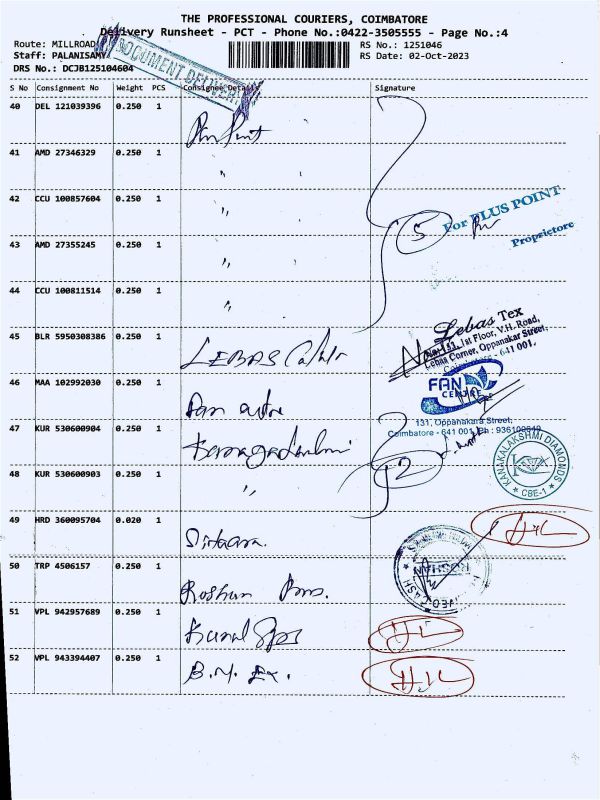 THE PROFESSIONAL COURIERS, COIMBATORE
Delivery Runsheet - PCT - Phone No.:0422-3505555 - Page No.:4
Route: MILLROAD
RS No.: 1251046
Staff: PALANISAMY
RS Date: 02-Oct-2023
DRS No.: DCJB125104604
DOCUMENT DELIVERY
S No Consignment No Weight PCS Consignee Details Signature
40 DEL 121039396 0.250 1
41 AMD 27346329 0.250 1 "
42 CCU 100857604 0.250 1 "
5
For PLUS POINT
Proprietore
43 AMD 27355245 0.250 1 "
44 CCU 100811514 0.250 1 "
45 BLR 5950308386 0.250 1 LEBAS
Lebas Tex
1st Floor, V.H. Road,
Lebas Corner, Oppanakar Street,
Coimbatore - 641 001.
46 MAA 102992030 0.250 1
FAN
CENTRE
131, Oppanakara Street,
Coimbatore - 641 001
47 KUR 530600904 0.250 1
2
KANAKALAKSHMI DIAMONDS
CBE-1
48 KUR 530600903 0.250 1 "
49 HRD 360095704 0.020 1
50 TRP 4506157 0.250 1 Roshan
ROSHAN
51 VPL 942957689 0.250 1
52 VPL 943394407 0.250 1 B.M. Ex.